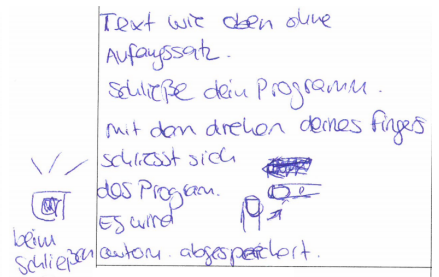 Text wie oben ohne
Anfangssatz.
Schließe dein Programm.
mit dem drehen deines Fingers
schliesst sich
das Program.
Es wird
autom. abgespeichert.
beim
Schließen